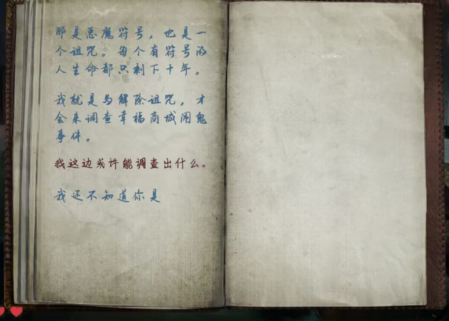 那是恶魔符号，也是一
个诅咒。每个有符号的
人生命都只剩下十年。
我就是为解除诅咒，才
会来调查幸福商城闹鬼
事件。
我这边或许能调查出什么。
我还不知道你是